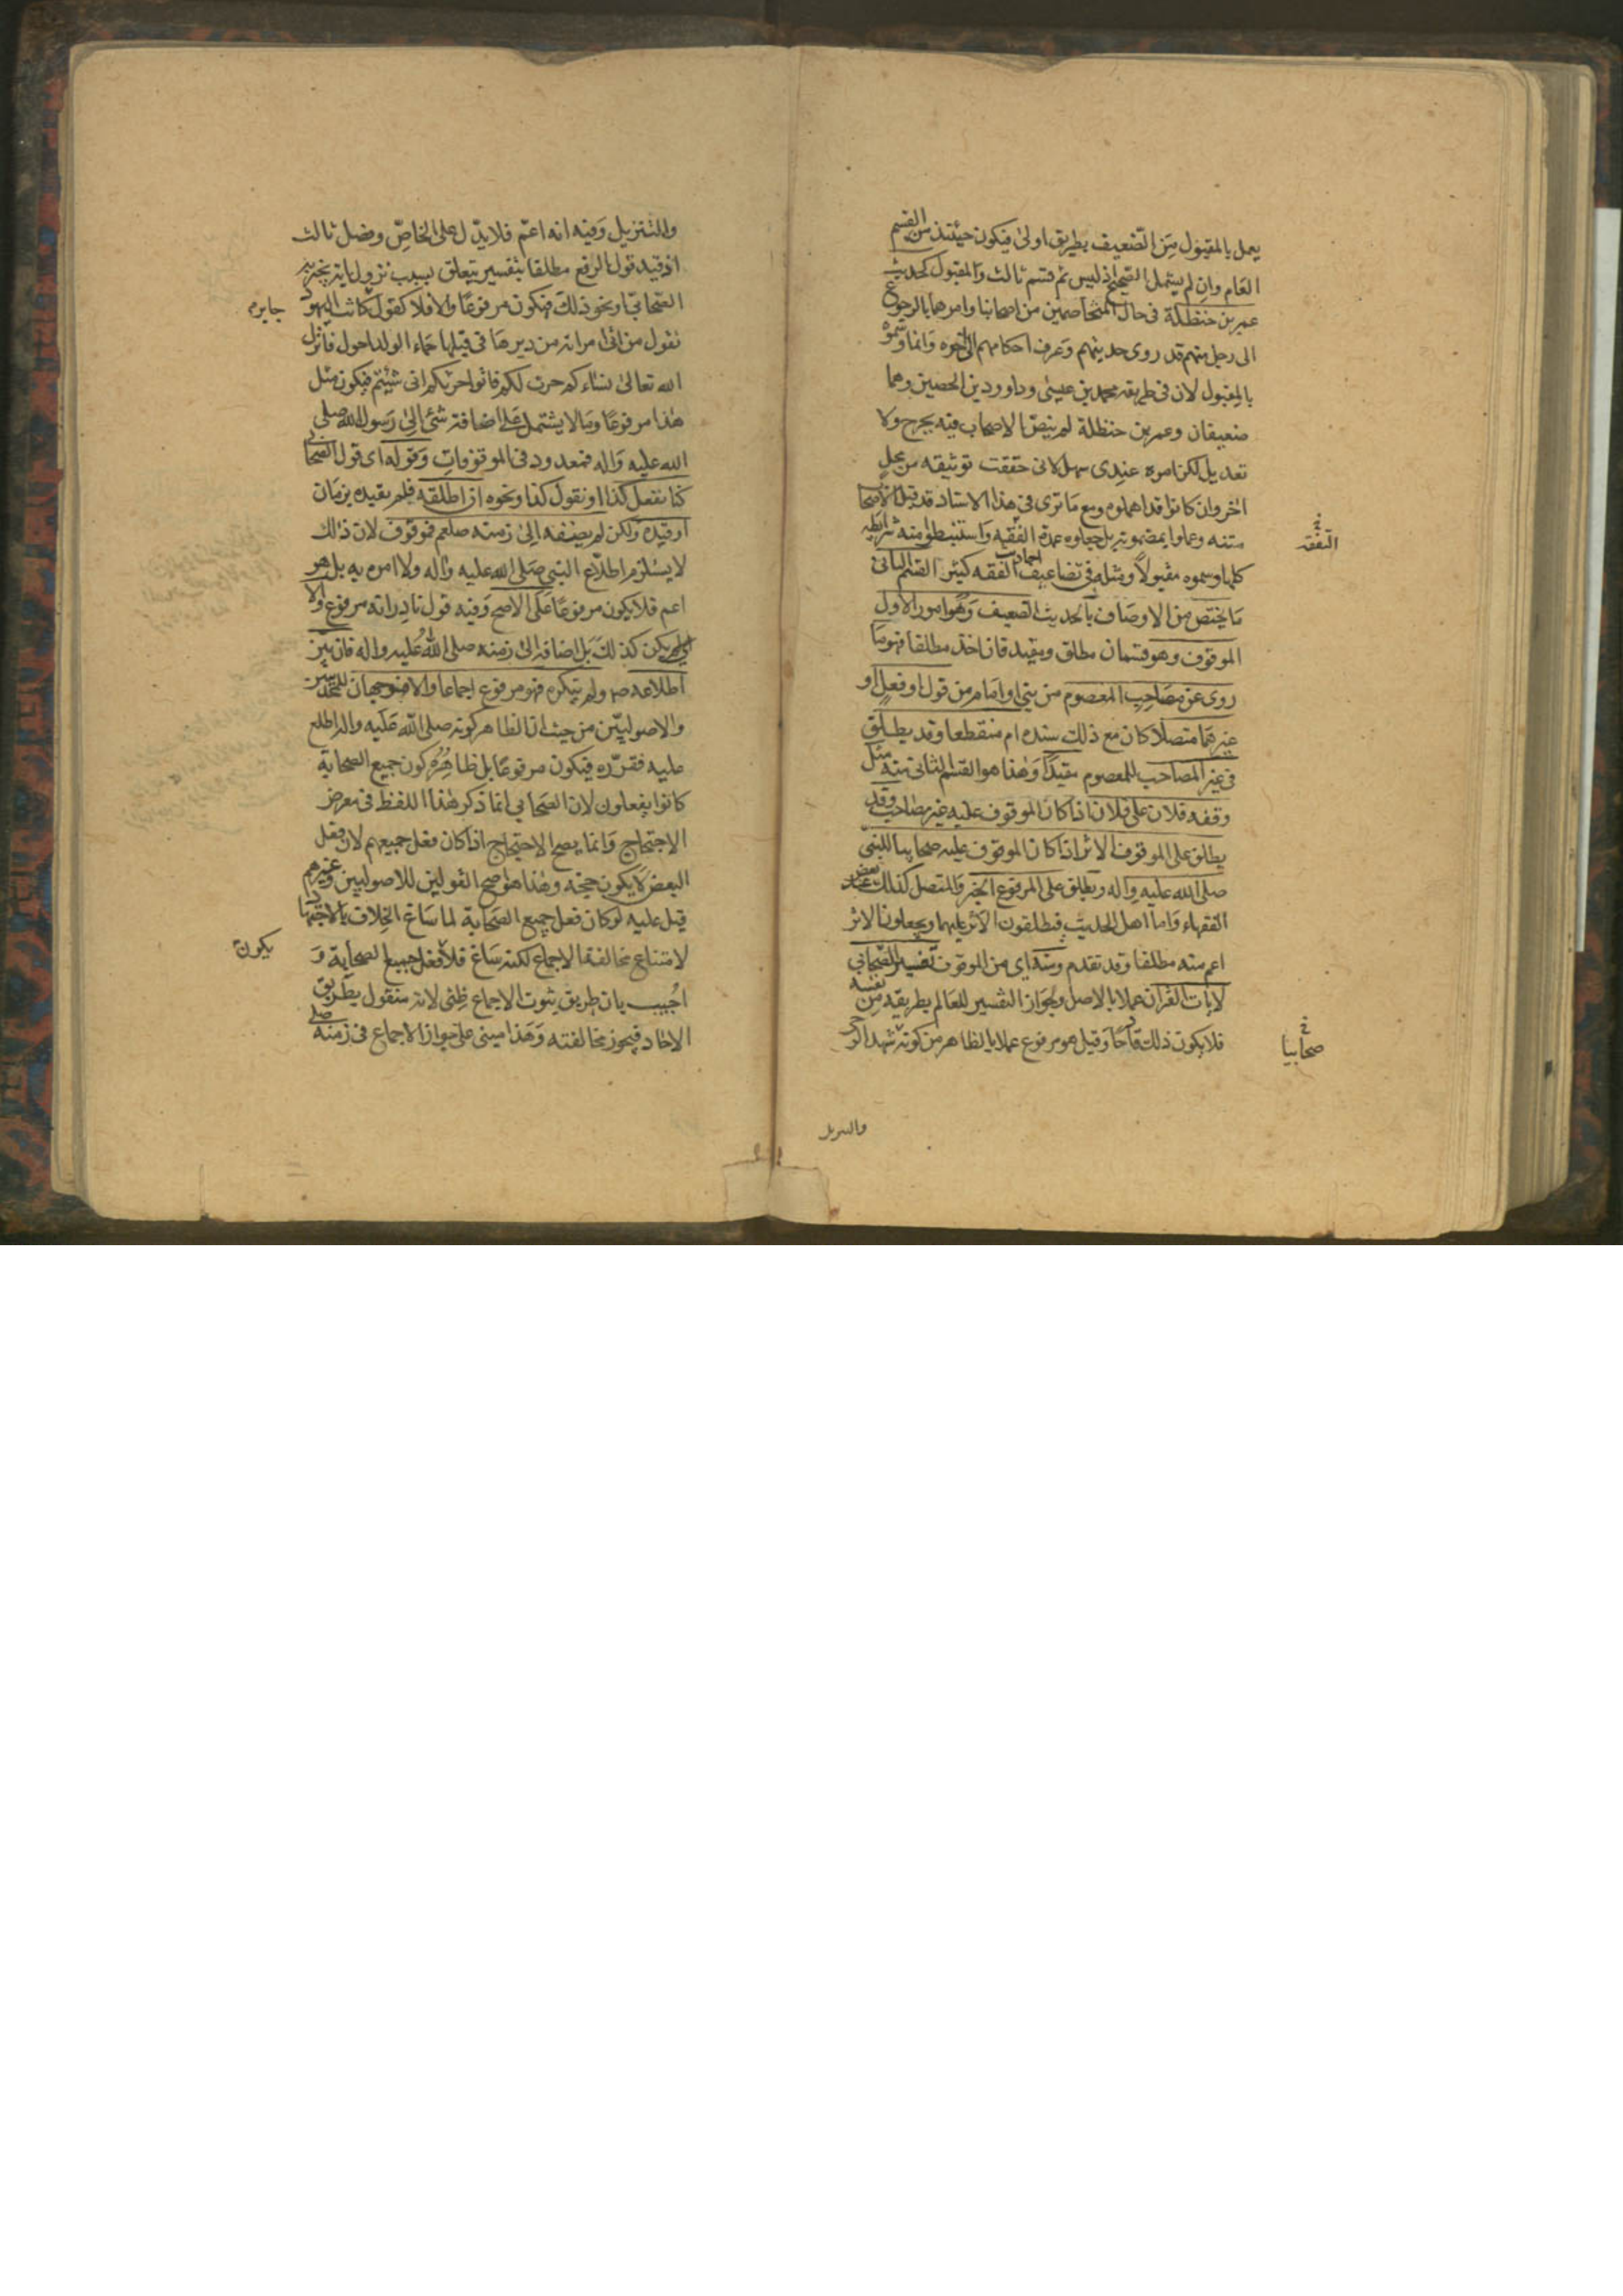 يعمل بالمقبول من الضعيف بطريق اولى فيكون حينئذ من القسم
العام وان لم يشمل الصحيح اذ ليس ثم قسم ثالث والمقبول كحديث
عمر بن حنظلة في حال المتخاصمين من اصحابنا وامرهما بالرجوع
الى رجل منهم قد روى حديثهم وعرف احكامهم الخبر وانما وسموه
بالمقبول لان في طريقه محمد بن عيسى وداود بن الحصين وهما
ضعيفان وعمر بن حنظلة لم ينص الاصحاب فيه بجرح ولا
تعديل لكن امره عندى سهل لانى حققت توثيقه من محل
اخر وان كانوا قد اهملوه ومع ما ترى في هذا الاسناد قد قبل الاصحاب
متنه وعملوا بمضمونه بل جعلوه عمدة الفقه واستنبطوا منه شرايطه
التفقه
كلها وسموه مقبولا ومثله في تضاعيف احاديث الفقه كثير القسم الثانى
ما يختص من الاوصاف بالحديث الضعيف وهو امور الاول
الموقوف وهو قسمان مطلق ومقيد فان اخذ مطلقا فهو ما
روى عن مصاحب المعصوم من نبي او امام من قول او فعل او
غيرهما متصلا كان مع ذلك سنده ام منقطعا وقد يطلق
في غير المصاحب للمعصوم مقيدا وهذا هو القسم الثانى منه مثل
وقفه فلان على فلان اذا كان الموقوف عليه غير مصاحب وقد
يطلق على الموقوف الاثر اذا كان الموقوف عليه صحابيا للنبي
صلى الله عليه واله ويطلق على المرفوع الخبر والمتصل كذلك بعض
الفقهاء واما اهل الحديث فيطلقون الاثر عليهما ويجعلون الاثر
اعم منه مطلقا وقد تقدم ومنه اى من الموقوف تفسير الصحابي
لايات القران عملا بالاصل ولجواز التفسير للعالم بطريقه من نفسه
فلا يكون ذلك قادحا وقيل هو مرفوع عملا بالظاهر من كونه شهد الوحى
صحابيا
والتنزيل
والتنزيل وفيه انه اعم فلا يدل على الخاص وفصل ثالث
اذ قيد قول الرفع مطلقا بتفسير يتعلق بسبب نزول اية يخبر به
الصحابي او نحو ذلك فيكون مرفوعا والا فلا كقول كانت اليهود
جابر
تقول من اتى امراته من دبرها في قبلها جاء الولد احول فانزل
الله تعالى نساءكم حرث لكم فاتوا حرثكم انى شئتم فيكون مثل
هذا مرفوعا وما لا يشتمل على اضافة شئ الى رسول الله صلى
الله عليه واله فمعدود في الموقوفات وقوله اى قول الصحابي
كنا نفعل كذا او نقول كذا ونحوه ان اطلقه فلم يقيده بزمان
او قيده ولكن لم يضفه الى زمنه صلعم فموقوف لان ذلك
لا يستلزم اطلاع النبي صلى الله عليه واله ولا امره به بل هو
اعم فلا يكون مرفوعا على الاصح وفيه قول نادر انه مرفوع والا
يكن كذلك بل اضافه الى زمنه صلى الله عليه واله فان بين
اطلاعه ص ولم ينكره فهو مرفوع اجماعا والا فوجهان للمحدثين
والاصوليين من حيث ان الظاهر كونه صلى الله عليه واله اطلع
عليه فقرره فيكون مرفوعا بل ظاهره كون جميع الصحابة
كانوا يفعلون لان الصحابي انما ذكر هذا اللفظ في معرض
الاحتجاج وانما يصح الاحتجاج اذا كان فعل جميعهم لان فعل
البعض لا يكون حجة وهذا هو اصح القولين للاصوليين وغيرهم
قيل عليه لو كان فعل جميع الصحابة لما ساغ الخلاف بالاجتهاد
لامتناع مخالفة الاجماع لكنه ساغ فلا فعل جميع الصحابة و
يكون
اجيب بان طريق ثبوت الاجماع ظنى لانه منقول بطريق
الاحاد فيجوز مخالفته وهذا مبنى على جواز الاجماع في زمنه صلى